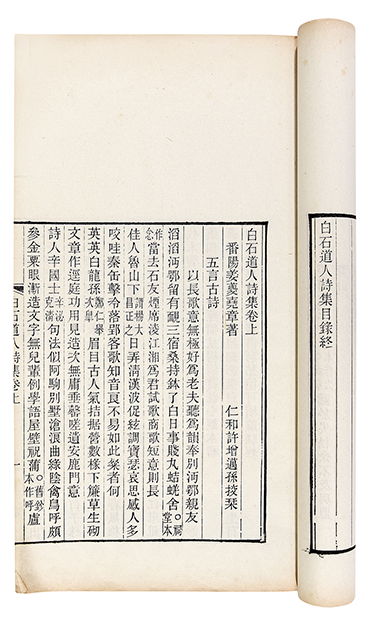 白石道人詩集目錄終
白石道人詩集卷上
番陽姜夔堯章著 仁和許增邁孫挍栞
五言古詩
以長歌意無極好爲老夫聽爲韻奉別沔鄂親友
滔滔沔鄂留有靦三宿桑持鉢了白日事賤丸蛣蜣舍○祠堂本
作念當去石友煙席淩江湘爲君試歌商歌短意則長
佳人魯山下謂楊大昌正之日弄清漢波促絃調寶瑟哀思感人多
咬哇秦缶擊冷落郢客歌知音良不易如此粲者何
英英白龍孫鄭仁舉次皋眉目古人氣拮据營數椽下簾草生砌
文章作逕庭功用見造次無庸垂罄嗟遺安鹿門意
詩人辛國士辛泌克清句法似阿駒別墅滄浪曲綠陰禽鳥呼頗
參金粟眼漸造文字無兒輩例學語屋壁祝蒲○舊鈔本作呼盧
白石道人詩集卷上 一